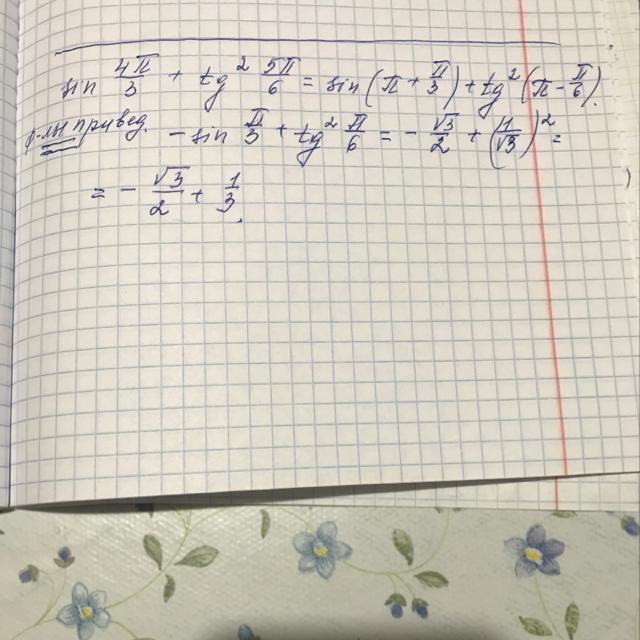 sin 4π/3 + tg² 5π/6 = sin(π + π/3) + tg²(π - π/6).
ф-лы привед. - sin π/3 + tg² π/6 = - √3/2 + (1/√3)² =
= - √3/2 + 1/3.